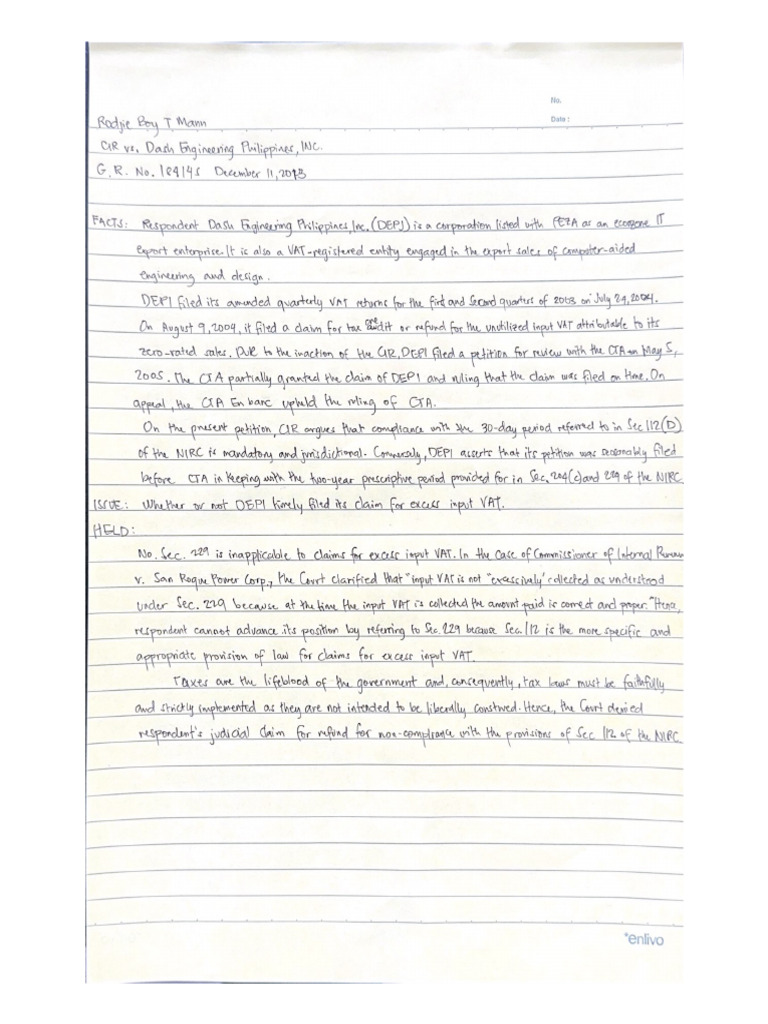 No.
Rodjie Boy T Mann
Date :
CIR vs. Dash Engineering Philippines, INC.
G.R. No. 184145 December 11, 2013
FACTS: Respondent Dash Engineering Philippines, Inc. (DEPI) is a corporation listed with PEZA as an ecozone IT
export enterprise. It is also a VAT-registered entity engaged in the export sales of computer-aided
engineering and design.
DEPI filed its amended quarterly VAT returns for the first and second quarters of 2003 on July 24, 2004.
On August 9, 2004, it filed a claim for tax credit or refund for the unutilized input VAT attributable to its
zero-rated sales. Due to the inaction of the CIR, DEPI filed a petition for review with the CTA on May 5,
2005. The CTA partially granted the claim of DEPI and ruling that the claim was filed on time. On
appeal, the CTA En banc upheld the ruling of CTA.
On the present petition, CIR argues that compliance with the 30-day period referred to in Sec 112 (D)
of the NIRC is mandatory and jurisdictional. Conversely, DEPI asserts that its petition was seasonably filed
before CTA in keeping with the two-year prescriptive period provided for in Sec, 204(c) and 229 of the NIRC
ISSUE: Whether or not DEPI timely filed its claim for excess input VAT.
HELD:
No. Sec. 229 is inapplicable to claims for excess input VAT. In the case of Commissioner of Internal Revenue
v. San Roque Power Corp., the Court clarified that "input VAT is not "excessively' collected as understood
under Sec. 229 because at the time the input VAT is collected the amount paid is correct and proper." Hence,
respondent cannot advance its position by referring to Sec. 229 because Sec. 112 is the more specific and
appropriate provision of law for claims for excess input VAT.
Taxes are the lifeblood of the government and, consequently, tax laws must be faithfully
and strictly implemented as they are not intended to be liberally construed. Hence, the Court denied
respondent's judicial claim for refund for non-compliance with the provisions of Sec 112 of the NIRC
*enlivo